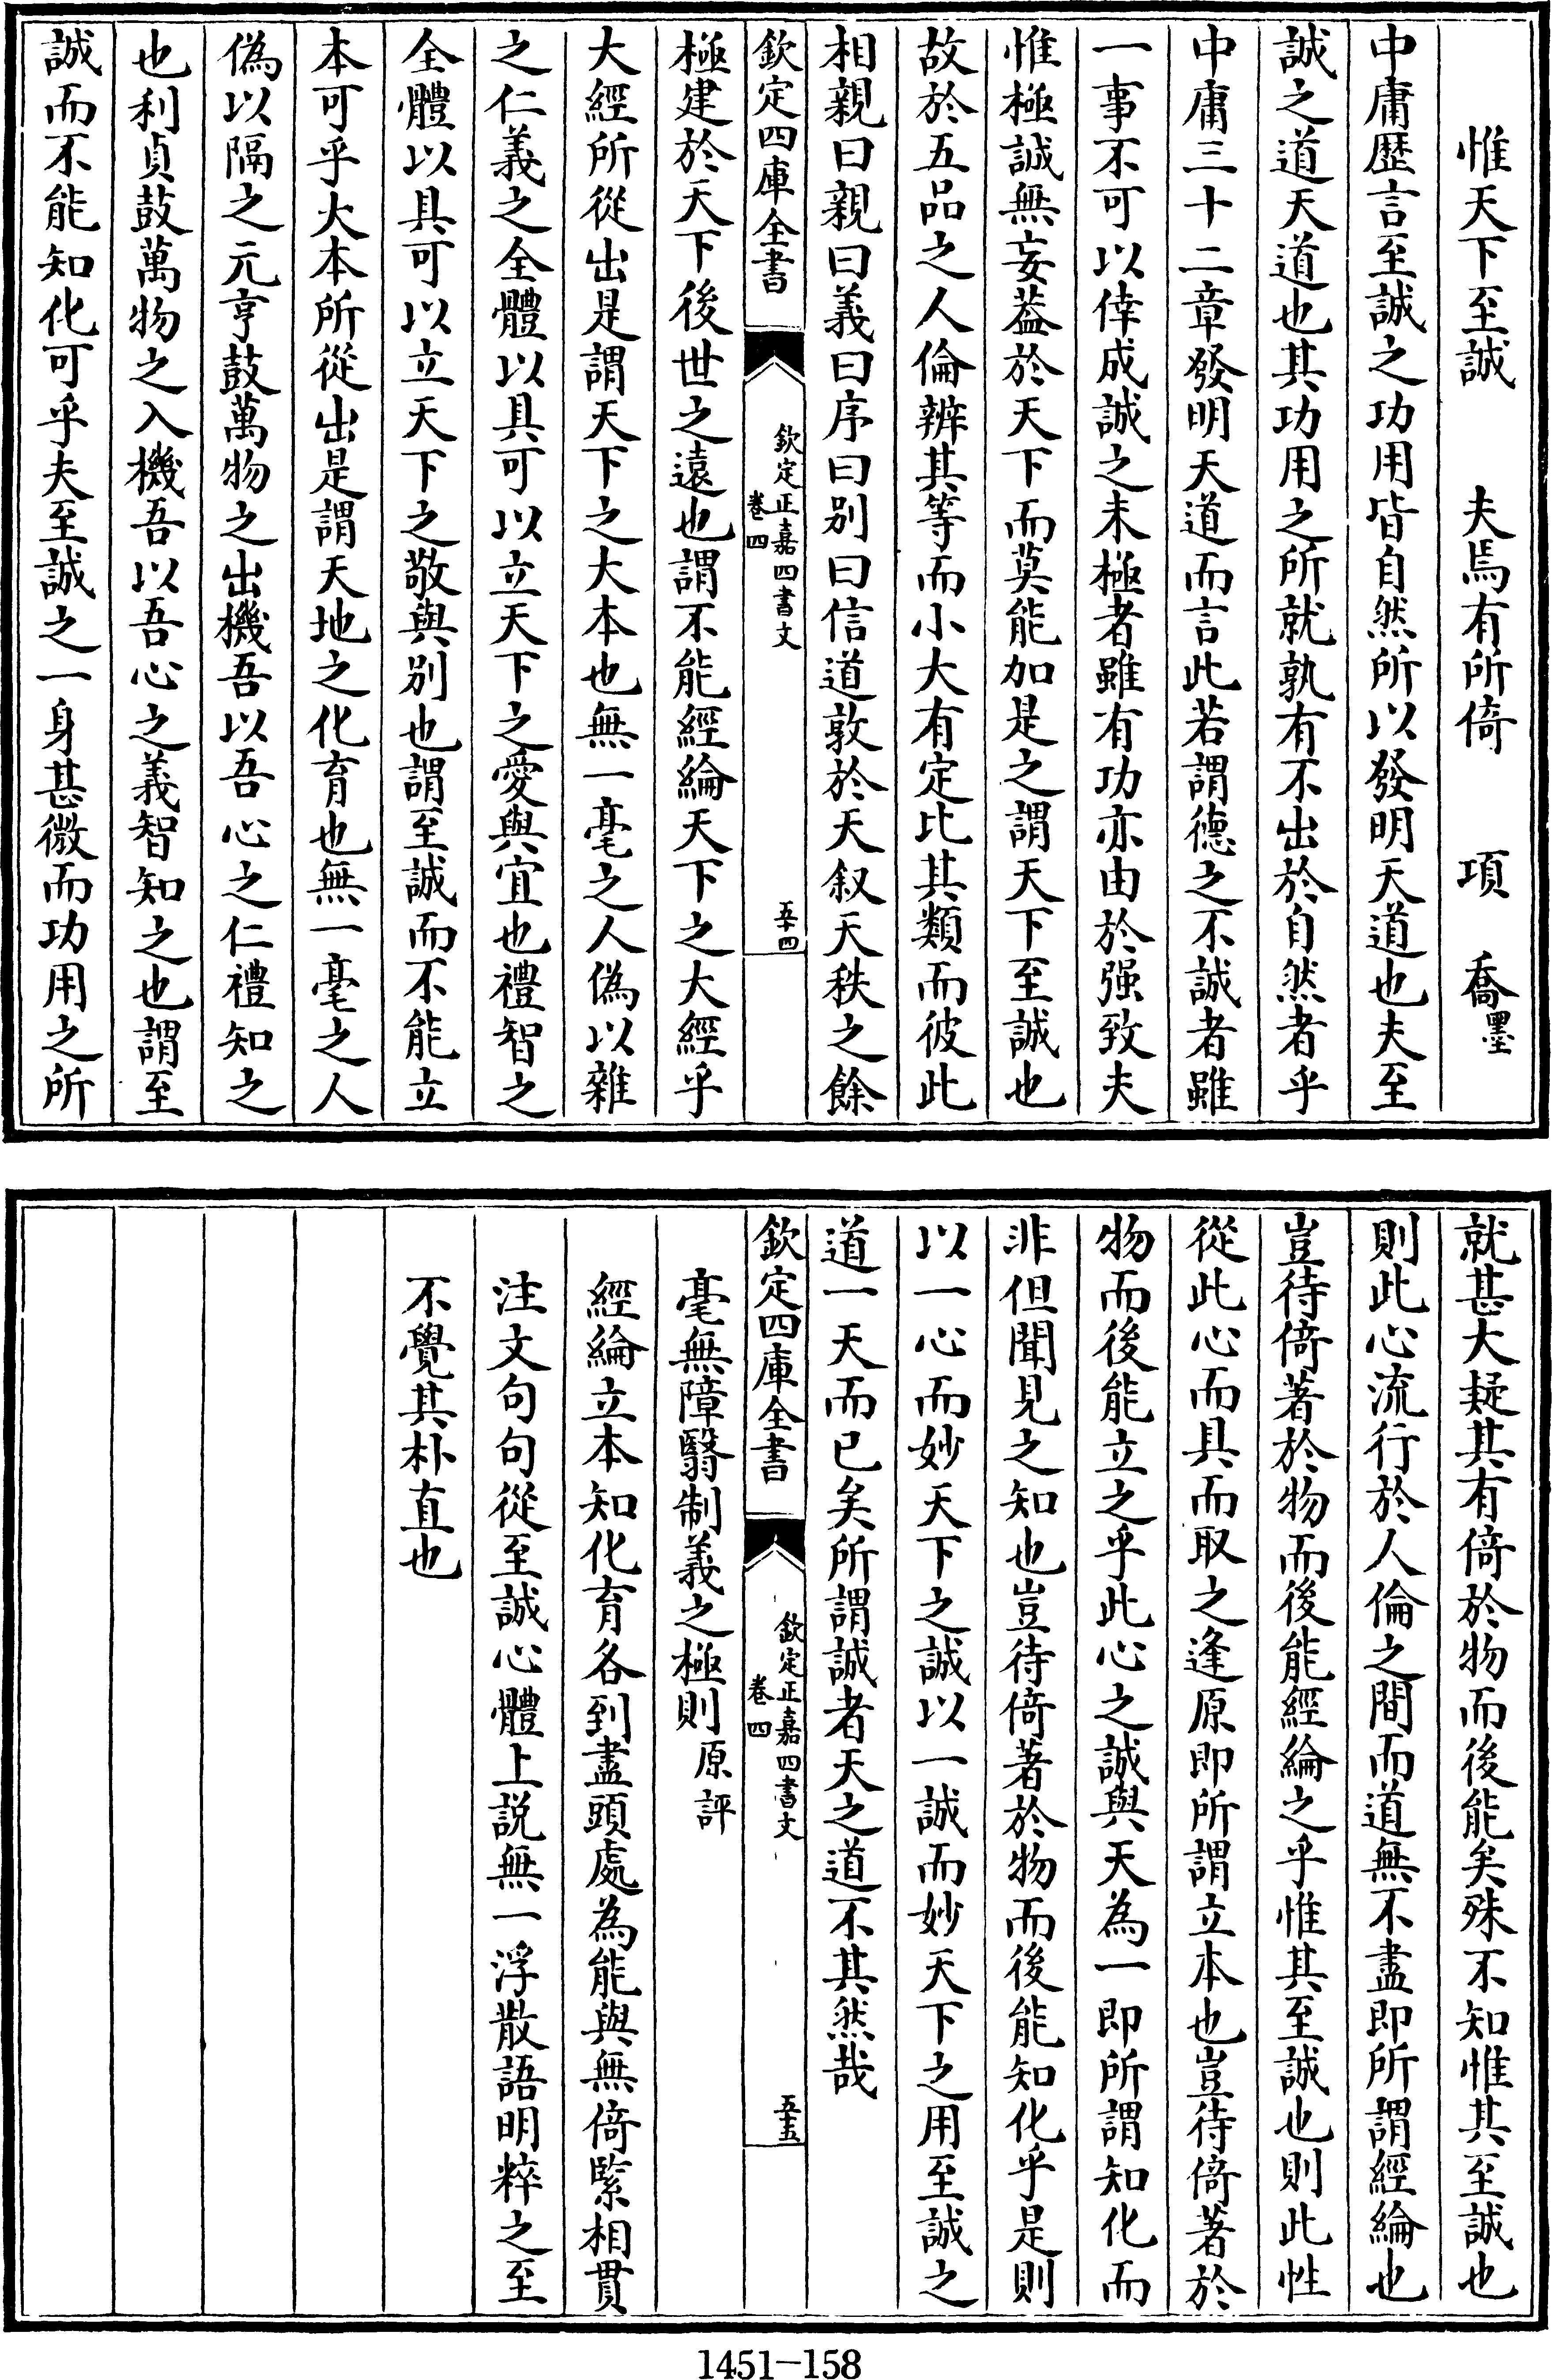 惟天下至誠　夫焉有所倚　項喬墨
中庸歴言至誠之功用皆自然所以發明天道也夫至
誠之道天道也其功用之所就孰有不出於自然者乎
中庸三十二章發明天道而言此若謂德之不誠者雖
一事不可以倖成誠之未極者雖有功亦由於强致夫
惟極誠無妄葢於天下而莫能加是之謂天下至誠也
故於五品之人倫辨其等而小大有定比其類而彼此
相親曰親曰義曰序曰别曰信道敦於天叙天秩之餘
欽定四庫全書
欽定正嘉四書文
卷四
五十四
極建於天下後世之遠也謂不能經綸天下之大經乎
大經所從出是謂天下之大本也無一毫之人偽以雜
之仁義之全體以具可以立天下之愛與宜也禮智之
全體以具可以立天下之敬與别也謂至誠而不能立
本可乎大本所從出是謂天地之化育也無一毫之人
偽以隔之元亨鼓萬物之出機吾以吾心之仁禮知之
也利貞鼓萬物之入機吾以吾心之義智知之也謂至
誠而不能知化可乎夫至誠之一身甚微而功用之所
就甚大疑其有倚於物而後能矣殊不知惟其至誠也
則此心流行於人倫之間而道無不盡即所謂經綸也
豈待倚著於物而後能經綸之乎惟其至誠也則此性
從此心而具而取之逢原即所謂立本也豈待倚著於
物而後能立之乎此心之誠與天為一即所謂知化而
非但聞見之知也豈待倚著於物而後能知化乎是則
以一心而妙天下之誠以一誠而妙天下之用至誠之
道一天而已矣所謂誠者天之道不其然哉
欽定四庫全書
欽定正嘉四書文
卷四
五十五
毫無障翳制義之極則原評
經綸立本知化育各到盡頭處為能與無倚緊相貫
注文句句從至誠心體上説無一浮散語明粹之至
不覺其朴直也
1451-158